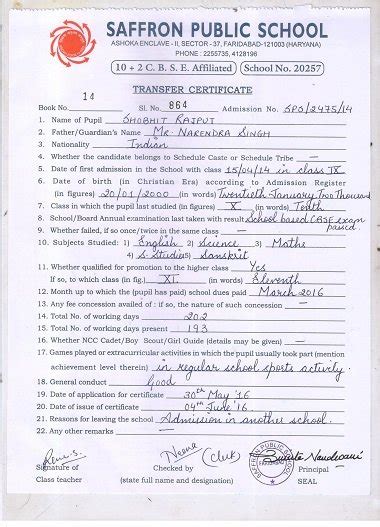 SAFFRON PUBLIC SCHOOL
ASHOKA ENCLAVE - II, SECTOR - 37, FARIDABAD-121003 (HARYANA)
PHONE : 2255735, 4128196
10 + 2 C. B. S. E. Affiliated School No. 20257
TRANSFER CERTIFICATE
Book No. 14 Sl. No. 864 Admission No. SPS/2475/14
1. Name of Pupil Shobhit Rajput
2. Father/Guardian's Name Mr. Narendra Singh
3. Nationality Indian
4. Whether the candidate belongs to Schedule Caste or Schedule Tribe —
5. Date of first admission in the School with class 15/04/14 in class IX
6. Date of birth (in Christian Era) according to Admission Register
(in figures) 20/01/2000 (in words) Twentieth January Two Thousand
7. Class in which the pupil last studied (in figures) X (in words) Tenth
8. School/Board Annual examination last taken with result School based CBSE exam passed.
9. Whether failed, if so once/twice in the same class —
10. Subjects Studied: 1) English 2) Science 3) Maths
4) S. Studies 5) Sanskrit
11. Whether qualified for promotion to the higher class Yes
If so, to which class (in fig.) XI. (in words) Eleventh
12. Month up to which the (pupil has paid) school dues paid March 2016
13. Any fee concession availed : if so, the nature of such concession —
14. Total No. of working days 202
15. Total No. of working days present 193
16. Whether NCC Cadet/Boy Scout/Girl Guide (details may be given) —
17. Games played or extracurricular activities in which the pupil usually took part (mention
achievement level therein) in regular school sports activity.
18. General conduct Good
19. Date of application for certificate 30th May '16
20. Date of issue of certificate 04th June '16
21. Reasons for leaving the school Admission in another school.
22. Any other remarks —
Neena (Clerk)
Signature of Checked by Principal
Class teacher (state full name and designation) SEAL
SAFFRON PUBLIC SCHOOL